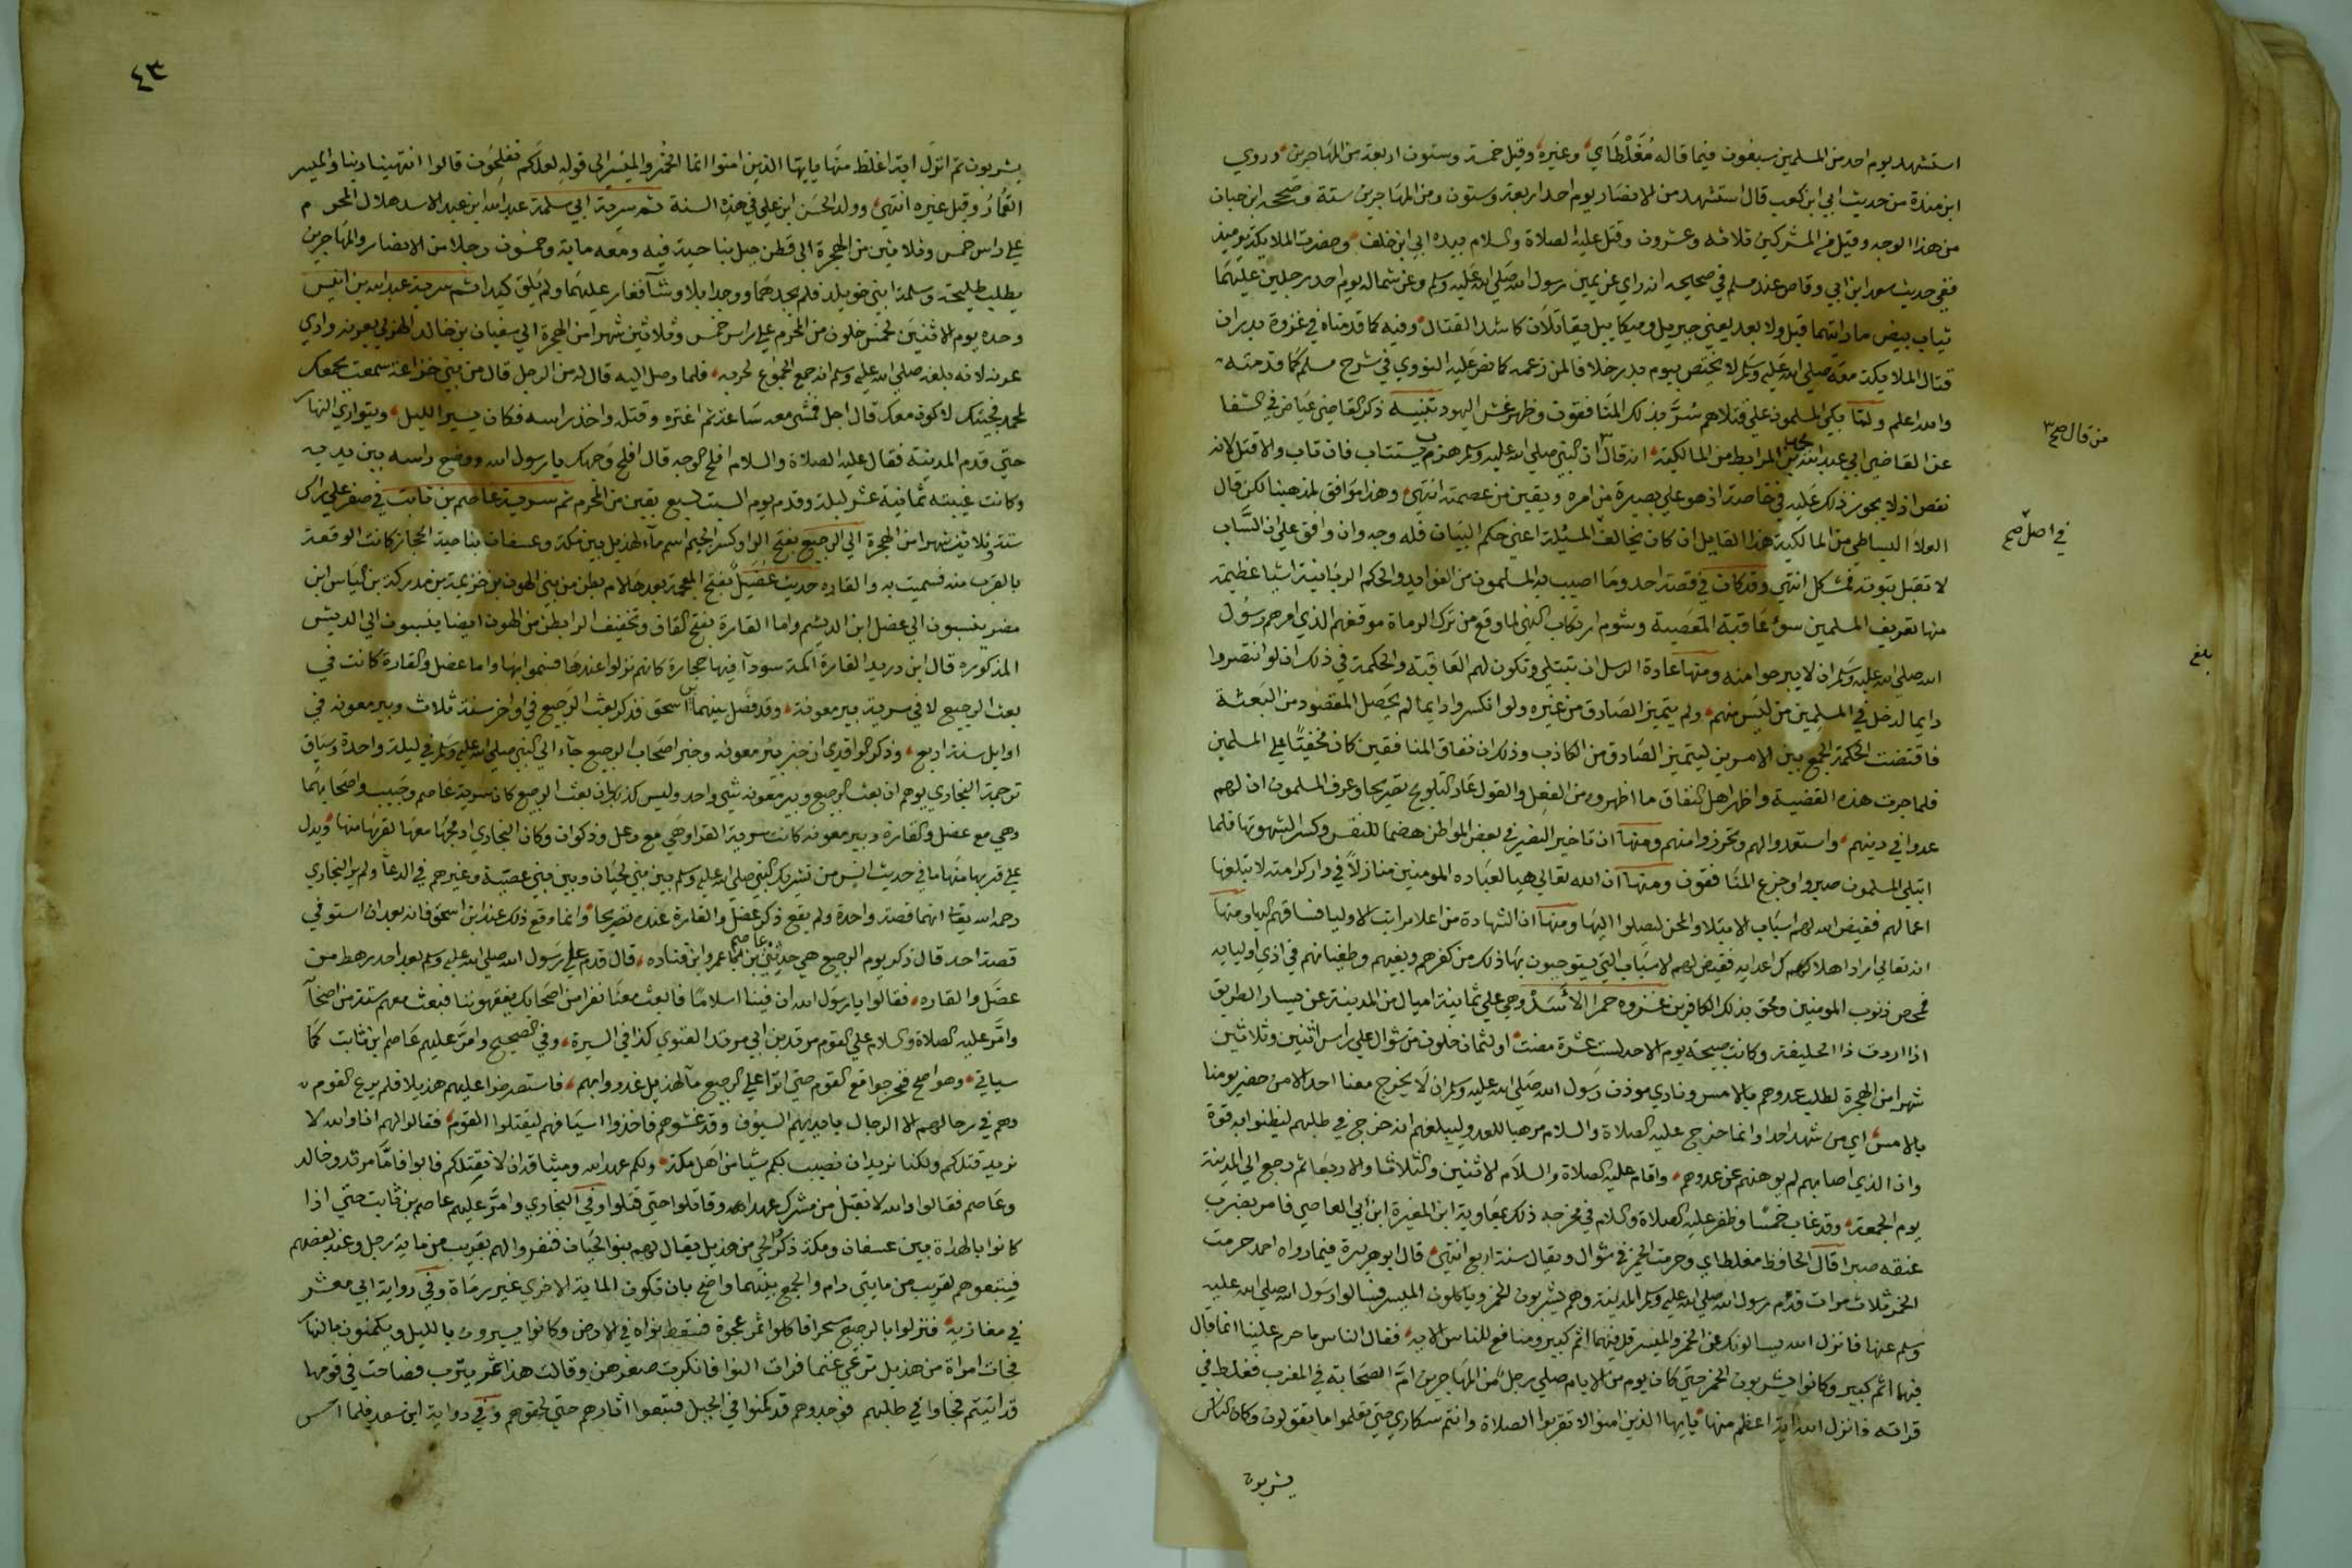 استشهد يوم احد من المسلمين سبعون فيما قاله مُغَلْطَاي وغيره وقيل خمسة وستون اربعة من المهاجرين وروي
ابن مندة من حديث ابي ابن كعب قال استشهد من الانصار يوم احد اربعة وستون ومن المهاجرين ستة وصححه ابن حبان
من هذا الوجه وقتل من المشركين ثلاثه وعشرون وقتل عليه الصلاة والسلام بيده ابي ابن خلف وحضرت الملايكة يوميذ
ففي حديث سعد ابن ابي وقاص عند مسلم في صحيحه انه راي عن يمين رسول الله صلي الله عليه وسلم وعن شماله يوم احد رجلين عليهما
ثياب بيض ما رايتهما قبل ولا بعد يعني جبريل وميكاييل يقاتلان كاشد القتال وفيه كما قدمناه في غزوة بدر ان
قتال الملايكة معه صلي الله عليه وسلم لا يختص بيوم بدر خلافا لمن زعمه كما نص عليه النووي في شرح مسلم كما قدمته
والله اعلم ولما بكي المسلمون علي قتلاهم سُرَّ بذلك المنافقون وظهر غش اليهود تنبيه ذكر القاضي عياض في الشفا
من قال صح
عن القاضي ابي عبد الله بن المرابط من المالكية انه قال ان النبي صلي الله عليه وسلم هزم يستتاب فان تاب والا قتل لانه
نقص اذ لا يجوز ذلك عليه في خاصته اذ هو علي بصيرة من امره ويقين من عصمته انتهي وهذا موافق لمذهبنا لكن قال
في اصل صح
العلا البساطي من المالكية هذا القايل ان كان يخالف المسئلة اعني حكم الساب فله وجه وان وافق علي ان السَّاب
لا تقبل توبته فمشكل انتهي وقد كان في قصة احد وما اصيب به المسلمون من الفوايد والحكم الربانية اشيا عظيمة
منها تعريف المسلمين سوء عاقبة المعصية وشوم ارتكاب النهي لما وقع من ترك الرماة موقفهم الذي امرهم رسول
الله صلي الله عليه وسلم ان لا يبرحوا منه ومنها عادة الرسل ان تبتلي وتكون لهم العاقبة والحكمة في ذلك ان لو انتصروا
بلغ
دايما لدخل في المسلمين من ليس منهم ولم يتميز الصادق من غيره ولو انكسروا دايما لم يحصل المقصود من البعثة
فاقتضت الحكمة الجمع بين الامرين ليتميز الصادق من الكاذب وذلك ان نفاق المنافقين كان مخفيا علي المسلمين
فلما جرت هذه القضية واظهر اهل النفاق ما اظهروه من الفعل والقول عاد التلويح تصريحا وعرف المسلمون ان لهم
عدوا في دينهم واستعدوا لهم وتحرزوا منهم ومنها ان تاخير النصر في بعض المواطن هضما للنفس وكسرا لشهوتها فلما
ابتلي المسلمون صبروا وجزع المنافقون ومنها ان الله تعالي هيا لعباده المومنين منازلاً في دار كرامته لا تبلغها
اعمالهم فقيض الله لهم اسباب الابتلا والمحن ليصلوا اليها ومنها ان الشهادة من اعلا مراتب الاوليا فساقهم اليها ومنها
انه تعالي اراد اهلاك اعدايه فقيض لهم الاسباب التي يستوجبون بها ذلك من كفرهم وبغيهم وطغيانهم في اذي اوليايه
فمحص ذنوب المومنين ومحق بذلك الكافرين غزوه حمرا الاسد وهي علي ثمانية اميال من المدينة عن يسار الطريق
اذا اردت ذا الحليفة وكانت صبيحة يوم الاحد لست عشرة مضت او لثمان خلون من شوال علي راس اثنين وثلاثين
شهرا من الهجرة لطلب عدوهم بالامس ونادي موذن رسول الله صلي الله عليه وسلم ان لا يخرج معنا احد الا من حضر يومنا
بالامس اي من شهد احدا وانما خرج عليه الصلاة والسلام مرهبا للعدو وليبلغهم انه خرج في طلبهم ليظنوا به قوة
وان الذي اصابهم لم يوهنهم عن عدوهم واقام عليه الصلاة والسلام الاثنين والثلاثا والاربعا ثم رجع الي المدينة
يوم الجمعة وقد غاب خمسا وظفر عليه الصلاة والسلام في مخرجه ذلك بمعاوية ابن المغيرة ابن ابي العاصي فامر بضرب
عنقه صبرا قال الحافظ مغلطاي وحرمت الخمر في شوال ويقال سنة اربع انتهي قال ابو هريرة فيما رواه احمد حرمت
الخمر ثلاث مرات قدم رسول الله صلي الله عليه وسلم المدينة وهم يشربون الخمر وياكلون الميسر فسالوا رسول الله صلي الله عليه
وسلم عنها فانزل الله يسالونك عن الخمر والميسر قل فيهما اثم كبير ومنافع للناس الايه فقال الناس ما حرم علينا انما قال
فيهما اثم كبير وكانوا يشربون الخمر حتي كان يوم من الايام صلي رجل من المهاجرين امَّ الصحابة في المغرب فغلط في
قراته فانزل الله اية اعظم منها يايها الذين امنوا لا تقربوا الصلاة وانتم سكاري حتي تعلموا ما تقولون وكان الناس
يشربون
٤٣
يشربون ثم انزل اية اغلظ منها يايها الذين امنوا انما الخمر والميسر الي قوله لعلكم تفلحون قالوا انتهينا ربنا والميسر
القمار وقيل غيره انتهي وولد الحسن ابن علي في هذه السنة ثم سرية ابي سلمة عبد الله ابن عبد الاسد هلال المحرم
علي راس خمس وثلاثين من الهجرة الي قطن جبل بناحية فيد ومعه ماية وخمسون رجلا من الانصار والمهاجرين
يطلب طليحة وسلمة ابني خويلد فلم يجدهما ووجد ابلا وشاً فاغار عليهما ولم يلق كيدا ثم سرية عبد الله بن انيس
وحده يوم الاثنين لخمس خلون من المحرم علي راس خمس وثلاثين شهرا من الهجرة الي سفيان بن خالد الهذلي بعرنه وادي
عرنه لانه بلغه صلي الله عليه وسلم انه جمع الجموع لحربه فلما وصل اليه قال له من الرجل قال من بني خزاعة سمعت بجمعك
لمحمد فجيتك لاكون معك قال اجل فمشي معه ساعة ثم اغتره وقتله واخذ راسه فكان يسير الليل ويتواري النهار
حتي قدم المدينة فقال عليه الصلاة والسلام افلح الوجه قال افلح وجهك يا رسول الله ووضع راسه بين يديه
وكانت غيبته ثمانية عشر ليلة وقدم يوم السبت لسبع بقين من المحرم ثم سرية عاصم بن ثابت في صفر علي راس
ستة وثلاثين شهرا من الهجرة الي الرجيع بفتح الرا وكسر الجيم اسم ماء لهذيل بين مكة وعسفان بناحية الحجاز كانت الوقعة
بالقرب منه فسميت به والقاره حديث عضل بفتح المعجمة بعدها لام بطن من بني الهون بن خزيمة بن مدركة بن الياس ابن
مضر ينسبون الي عضل ابن الديش واما القارة بفتح القاف وتخفيف الرا بطن من الهون ايضا ينسبون الي الديش
المذكوره قال ابن دريد القارة اكمة سودا فيها حجارة كانهم نزلوا عندها فسموا بها واما عضل والقارة كانت في
بعث الرجيع لا في سرية بير معونة وقد فصل بينهما ابن اسحق فذكر بعث الرجيع في اواخر سنة ثلاث وبير معونه في
اوايل سنة اربع وذكر الواقدي ان خبر بير معونه وخبر اصحاب الرجيع جآء الي النبي صلي الله عليه وسلم في ليلة واحدة وسياق
ترجمة البخاري يوهم ان بعث الرجيع وبير معونه شي واحد وليس كذلك لان بعث الرجيع كان سرية عاصم وخبيب واصحابهما
وهي مع عضل والقارة وبير معونه كانت سرية القرا وهي مع رعل وذكوان وكان البخاري ادمجها معها لقربها منها ويدل
علي قربها منها ما في حديث انس من تشريك النبي صلي الله عليه وسلم بين بني لحيان وبين بني عصية وغيرهم في الدعآ ولم يرد البخاري
رحمه الله تعالي انهما قصة واحدة ولم يقع ذكر عضل والقارة عنده تصريحا وانما وقع ذلك عند ابن اسحق فانه بعد ان استوفي
قصة احد قال ذكر يوم الرجيع حدثني عاصم بن عمر ابن قتاده قال قدم علي رسول الله صلي الله عليه وسلم بعد احد رهط من
عضل والقاره فقالوا يا رسول الله ان فينا اسلاما فابعث معنا نفرا من اصحابك يفقهوننا فبعث معهم ستة من اصحابه
وامَّر عليه الصلاة والسلام علي القوم مرثد بن ابي مرثد الغنوي كذا في السيرة وفي الصحيح وامَّر عليهم عاصم ابن ثابت كما
سياتي وهو اصح فخرجوا مع القوم حتي اتوا علي الرجيع ماً لهذيل غدروا بهم فاستصرخوا عليهم هذيلا فلم يرع القوم
وهم في رحالهم الا الرجال بايديهم السيوف وقد غشوهم فاخذوا اسيافهم ليقتلوا القوم فقالوا لهم انا والله لا
نريد قتلكم ولكنا نريد ان نصيب بكم شيا من اهل مكة ولكم عهد الله وميثاقه ان لا نقتلكم فابوا فاما مرثد وخالد
وعاصم فقالوا والله لا نقبل من مشرك عهدا وقاتلوا حتي قتلوا وفي البخاري وامَّر عليهم عاصم بن ثابت حتي اذا
كانوا بالهداة بين عسفان ومكة ذكروا لحي من هذيل يقال لهم بنو لحيان فنفروا لهم بقريب من ماية رجل وعند بعضهم
فتبعوهم بقريب من مايتي رام والجمع بينهما واضح بان تكون الماية الاخري غير رماة وفي رواية ابي معشر
في مغازيه فنزلوا بالرجيع سحرا فاكلوا تمر عجوة فسقط نواه في الارض وكانوا يسيرون بالليل ويكمنون بالنهار
فجات امراة من هذيل ترعي غنما فرات النوا فانكرت صغرهن وقالت هذا تمر يثرب فصاحت في قومها
قد اتيتم فجاوا في طلبهم فوجدوهم قد كمنوا في الجبل فتبعوا اثارهم حتي لحقوهم وفي رواية ابن سعد فلما احس